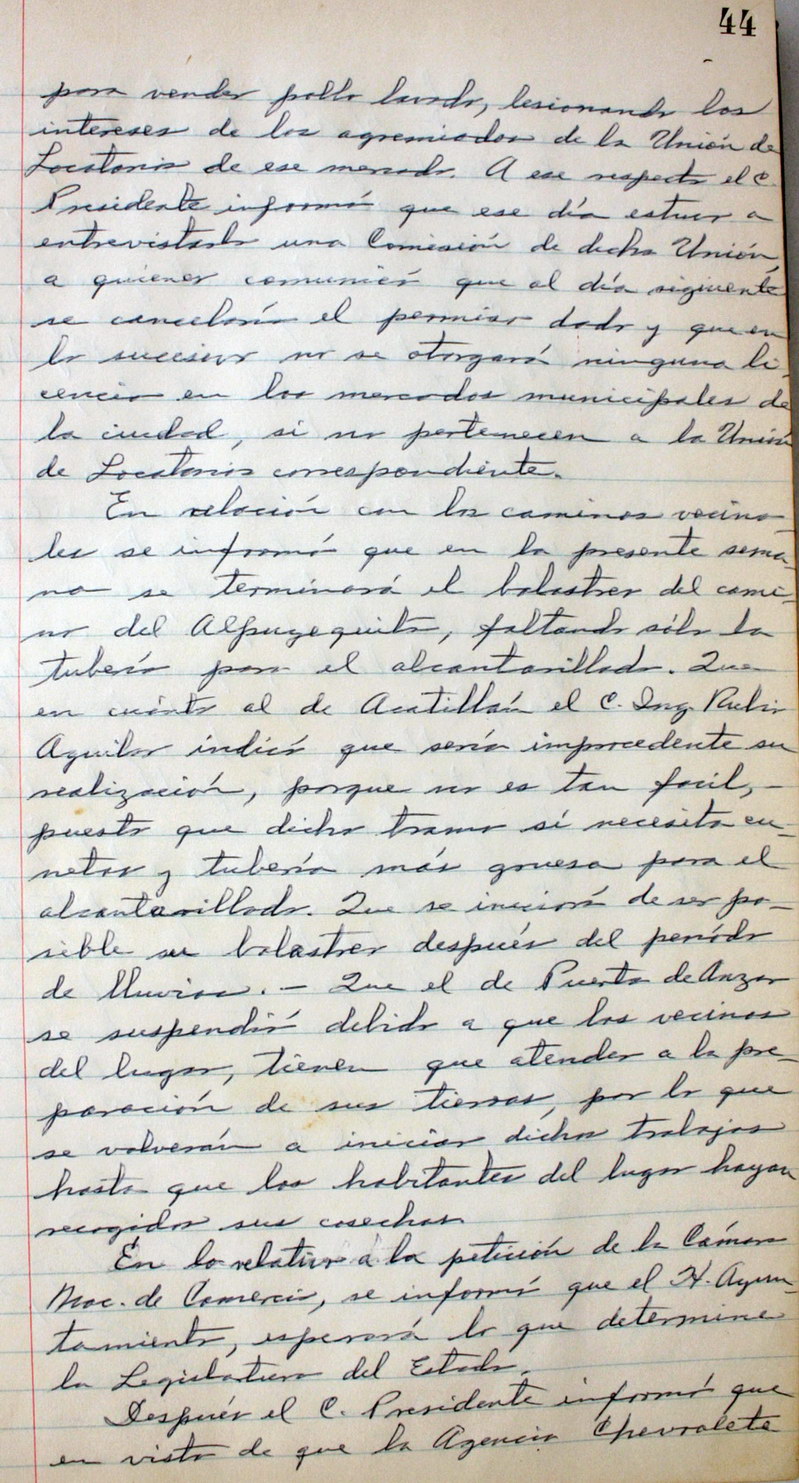 44
para vender pollo lavado, lesionando los
intereses de los agremiados de la Unión de
Locatarios de ese mercado. A ese respecto el C.
Presidente informó que ese día estuvo a
entrevistarlo una Comisión de dicha Unión,
a quienes comunicó que al día siguiente
se cancelaría el permiso dado y que en
lo sucesivo no se otorgará ninguna li-
cencia en los mercados municipales de
la ciudad, si no pertenecen a la Unión
de Locatarios correspondiente.
En relación con los caminos vecina-
les se informó que en la presente sema-
na se terminará el balastreo del cami-
no del Alpuyequito, faltando sólo la
tubería para el alcantarillado. Que
en cuánto al de Acatillán el C. Ing. Rubio
Aguilar indicó que sería improcedente su
realización, porque no es tan facíl, -
puesto que dicho tramo sí necesita cu-
netas y tubería más gruesa para el
alcantarillado. Que se iniciará de ser po-
sible su balastreo después del periódo
de lluvias. - Que el de Puerto de Anzar
se suspendió debido a que los vecinos
del lugar, tienen que atender a la pre-
paración de sus tierras, por lo que
se volverán a iniciar dichos trabajos
hasta que los habitantes del lugar hayan
recogidos sus cosechas.
En lo relativo a la petición de la Cámara
Nac. de Comercio, se informó que el H. Ayun-
tamiento, esperará lo que determine
la Legislatura del Estado.
Después el C. Presidente informó que
en vista de que la Agencia Chevrolete